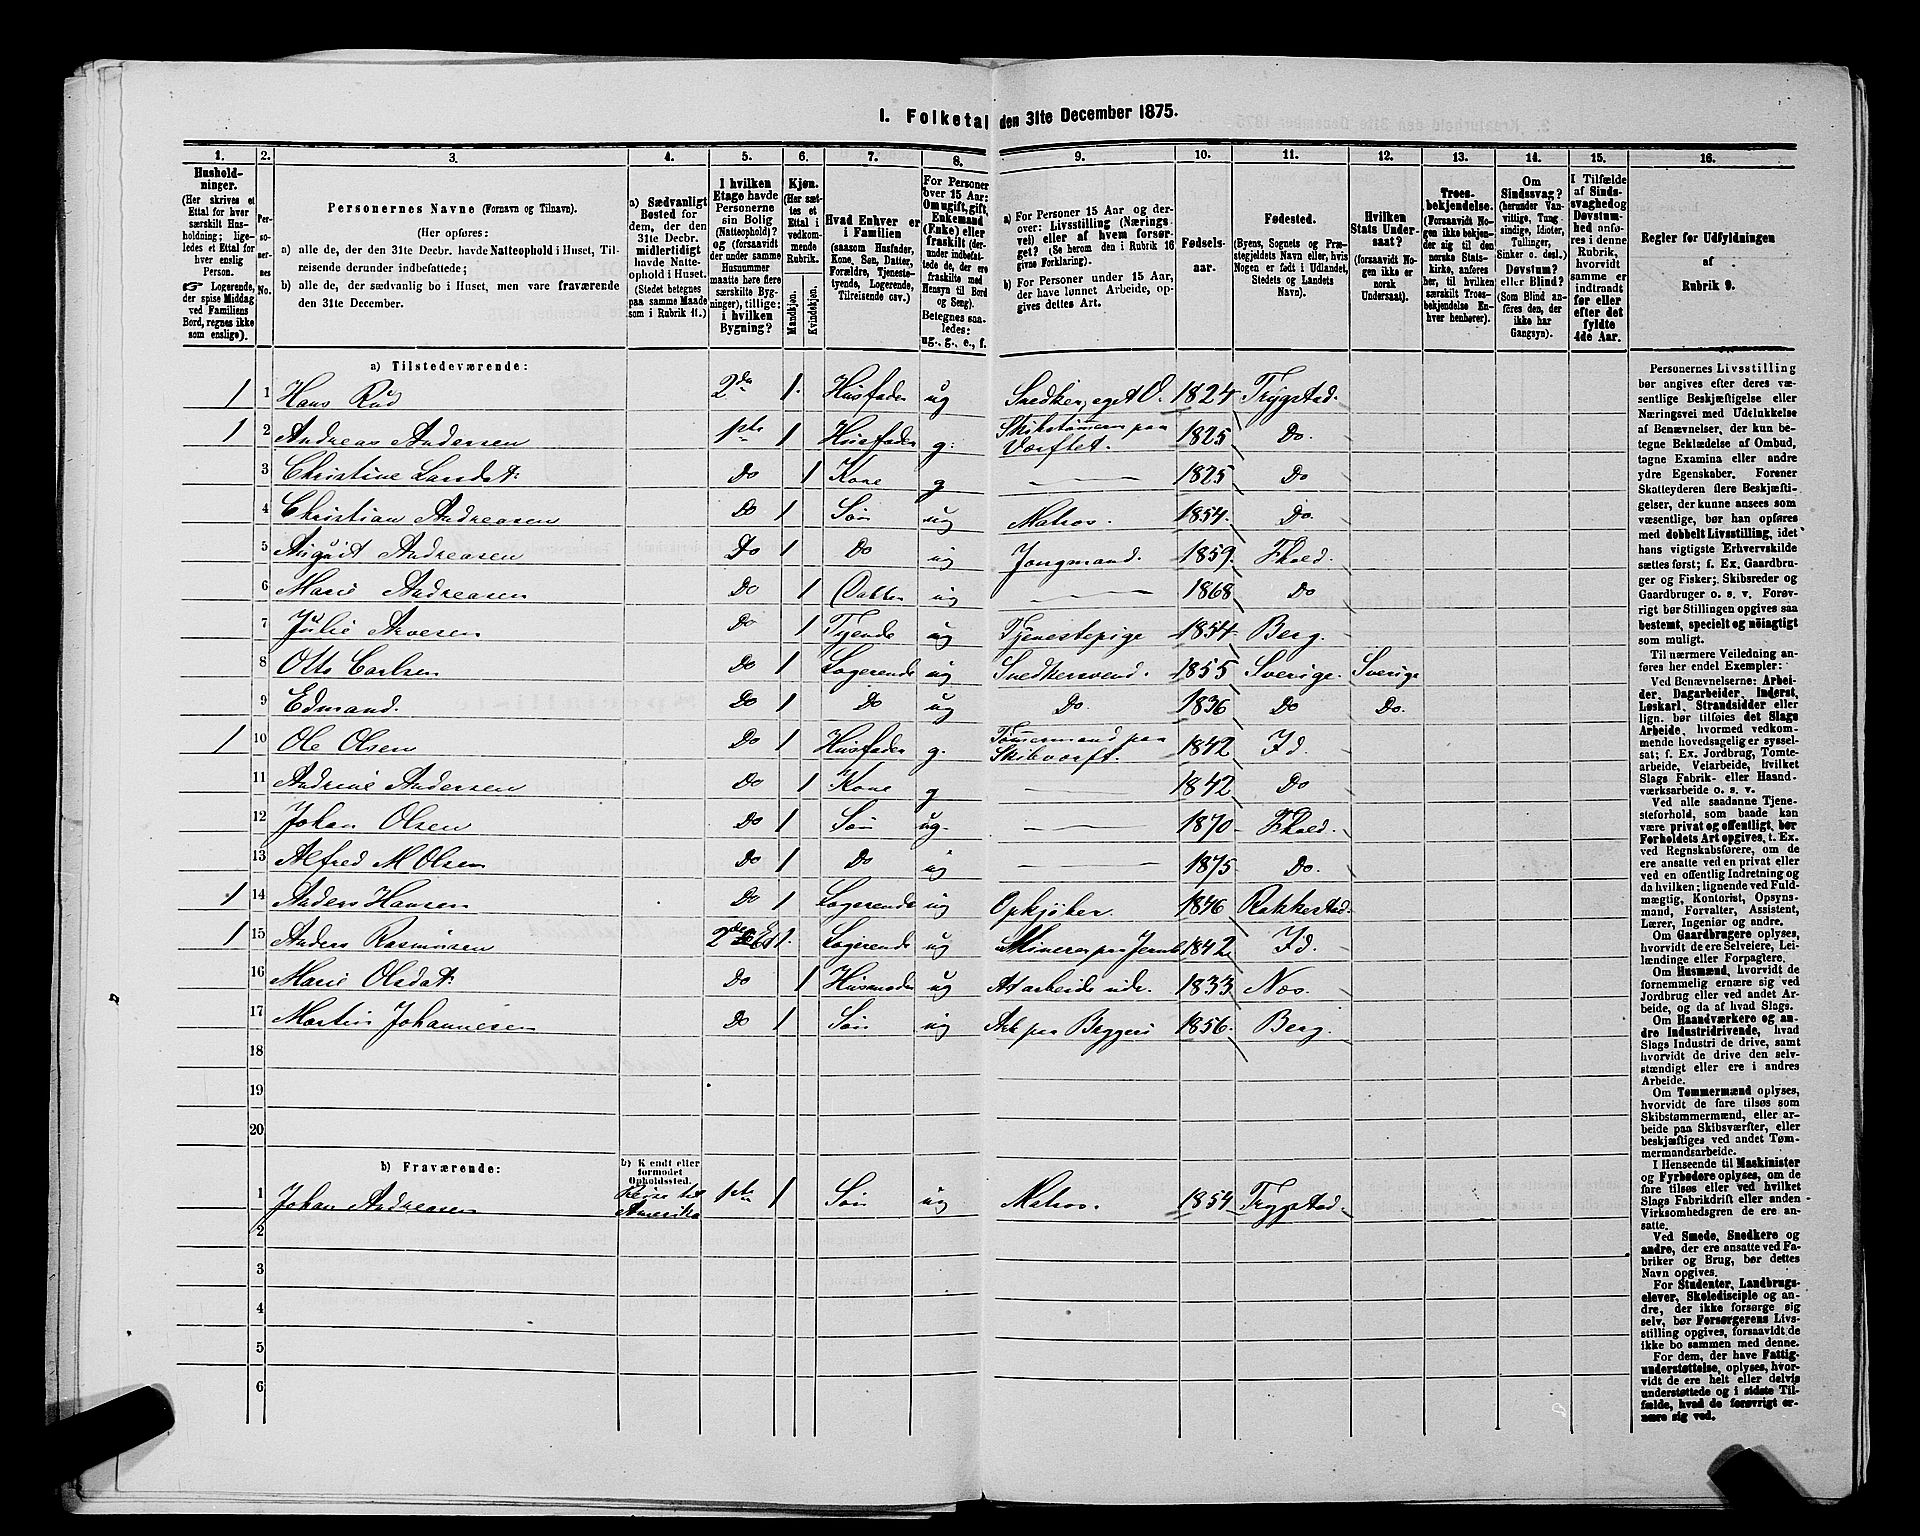 I. Folketal den 31te December 1875.
1. 2. 3. 4. 5. 6. 7. 8. 9. 10. 11. 12. 13. 14. 15. 16.
Hushold-
ninger.
(Her skrives et
Ettal for hver
særskilt Hus-
holdning; lige-
ledes et Ettal for
hver enslig
Person.
☞ Logerende,
der spise Middag
ved Familiens
Bord, regnes ikke
som enslige).
Per-
so-
ner-
nes
No.
Personernes Navne (Fornavn og Tilnavn).
(Her opføres:
a) alle de, der den 31te Decbr. havde Natteophold i Huset, Til-
reisende derunder indbefattede;
b) alle de, der sædvanlig bo i Huset, men vare fraværende
den 31te December.
a) Sædvanligt
Bosted for
dem, der den
31te Decbr.
midlertidigt
havde Natte-
ophold i Huset.
(Stedet betegnes
paa samme Maade
som i Rubrik 11.)
I hvilken
Etage havde
Personerne
sin Bolig
(Natteophold)?
og (forsaavidt
der under samme
Husnummer
maatte høre flere
særskilte Byg-
ninger), tillige:
i hvilken
Bygning?
Kjøn.
(Her sæt-
tes et
Ettal i
vedkom-
mende
Rubrik.
Mandkjøn.
Kvindekjøn.
Hvad Enhver er
i Familien
(saasom Husfader,
Kone, Søn, Datter,
Forældre, Tjeneste-
tyende, Logerende,
Tilreisende osv.)
For Personer
over 15 Aar:
Om ugift, gift,
Enkemand
(Enke) eller
fraskilt (der-
under indbefat-
tede de, der ere
fraskilte med
Hensyn til Bord
og Seng).
Betegnes saa-
ledes:
ug., g., e., f.
a) For Personer 15 Aar og der-
over: Livsstilling (Nærings-
vei) eller af hvem forsør-
get? (Se herom den i Rubrik 16
givne Forklaring).
b) For Personer under 15 Aar,
der have lønnet Arbeide, op-
gives dettes Art.
Fødsels-
aar.
Fødested.
(Byens, Sognets og Præ-
stegjeldets Navn eller, hvis
Nogen er født i Udlandet,
Stedets og Landets
Navn).
Hvilken
Stats Under-
saat?
(forsaavidt No-
gen ikke er
norsk
Undersaat).
Troes-
bekjendelse.
(Forsaavidt No-
gen ikke bekjen-
der sig til den
norske Stats-
kirke, anføres
her, til hvilken
særskilt Troes-
bekjendelse En-
hver henhører).
Om
Sindssvag?
(herunder Van-
vittige, Tung-
sindige, Idioter,
Tullinger,
Sinker o. desl.)
Døvstum?
eller Blind?
(Som Blind an-
føres den, der
ikke har
Gangsyn).
I Tilfælde
af Sinds-
svaghed og
Døvstum-
hed anfø-
res i denne
Rubrik,
hvorvidt
samme er
indtraadt
før eller
efter det
fyldte
4de Aar.
Regler for Udfyldningen
af
Rubrik 9.
a) Tilstedeværende:
1 1 Hans Rud 2den 1. Husfader ug Snedker, eget O. 1824 Trygstad.
1 2 Andreas Andersen 1ste 1 Husfader g. Skibstømmerm paa Værftet. 1825 Do.
3 Christine Larsdt: Do 1 Kone g — 1825 Do
4 Christian Andreasen Do 1 Søn ug Matros. 1854. Do.
5 August Andreasen Do 1 Do ug Jungmand. 1859. Fhald.
6 Marie Andreasen Do 1 Datter ug — 1868 Do
7 Julie Arvesen Do 1 Tyende ug Tjenestepige 1854 Berg.
8 Otto Carlsen Do 1 Logerende ug Snedkersvend. 1855 Sverige. Sverige
9 Edmand. Do 1 Do ug Do. 1836 Do Do.
1 10 Ole Olsen Do 1 Husfader g. Tømmermand paa Skibværft. 1842 Id.
11 Andrine Andersen Do 1 Kone g — 1842 Do
12 Johan Olsen Do 1 Søn ug. — 1870 Fhald.
13 Alfred M Olsen Do 1 Do ug — 1875 Do.
1 14 Anders Hansen Do 1 Logerende ug Opkjøber. 1846 Rakkestad.
1 15 Anders Rasmusen 2den Et 1. Logerende ug Minerer paa Jernb 1842 Id.
16 Marie Olsdat: Do 1 Husmoder ug Arbeide 1833 Næs.
17 Martin Johannesen Do 1 Søn ug Arb paa Bryggeri 1856. Berg.
18
19
20
b) Fraværende:
b) Kjendt eller
formodet
Opholdssted.
1 Johan Andreasen Reise til Amerika 1ste 1 Søn ug Matros. 1854 Trygstad.
2
3
4
5
6
Personernes Livsstilling
bør angives efter deres væ-
sentlige Beskjæftigelse eller
Næringsvei med Udelukkelse
af Benævnelser, der kun be-
tegne Beklædelse af Ombud,
tagne Examina eller andre
ydre Egenskaber. Forener
Skatteyderen flere Beskjæfti-
gelser, der kunne ansees som
væsentlige, bør han opføres
med dobbelt Livsstilling, idet
hans vigtigste Erhvervskilde
sættes først; f. Ex. Gaardbru-
ger og Fisker; Skibsreder og
Gaardbruger o. s. v. Forøv-
rigt bør Stillingen opgives saa
bestemt, specielt og nöiagtigt
som muligt.
Til nærmere Veiledning an-
føres her endel Exempler:
Ved Benævnelserne: Arbei-
der, Dagarbeider, Inderst,
Løskarl, Strandsidder eller
lign. bør tilføies det Slags
Arbeide, hvormed vedkom-
mende hovedsagelig er syssel-
sat; f. Ex. Jordbrug, Tomte-
arbeide, Veiarbeide, hvilket
Slags Fabrik- eller Haand-
værksarbeide o. s. v.
Ved alle saadanne Tjene-
steforhold, som baade kan
være privat og offentligt, bør
Forholdets Art opgives, t. Ex.
ved Regnskabsførere, om de
ere ansatte ved en privat eller
ved en offentlig Indretning og
da hvilken; lignende ved Fuld-
mægtig, Kontorist, Opsyns-
mand, Forvalter, Assistent,
Lærer, Ingeniør og andre.
Om Gaardbrugere oplyses,
hvorvidt de ere Selveiere, Lei-
lændinge eller Forpagtere.
Om Husmænd, hvorvidt de
fornemmelig ernære sig ved
Jordbrug eller ved andet Ar-
beide, og da af hvad Slags.
Om Haandværkere og an-
dre Industridrivende, hvad
Slags Industri de drive, samt
hvorvidt de drive den selv-
stændigt eller ere i andres
Arbeide.
Om Tømmermænd oplyses,
hvorvidt de fare tilsøs som
Skibstømmermænd, eller ar-
beide paa Skibsværfter, eller
beskjæftiges ved andet Tøm-
mermandsarbeide.
I Henseende til Maskinister
og Fyrbødere oplyses, om de
fare tilsøs eller ved hvilket
Slags Fabrikdrift eller anden
Virksomhedsgren de ere an-
satte.
Ved Smede, Snedkere og
andre, der ere ansatte ved Fa-
briker og Brug, bør dettes
Navn opgives.
For Studenter, Landbrugs-
elever, Skoledisciple og an-
dre, der ikke forsørge sig
selv, bør Forsørgerens Livs-
stilling opgives, forsaavidt de
ikke bo sammen med denne.
For dem, der have Fattig-
understøttelse, oplyses, hvor-
vidt de ere helt eller delvis
understøttede og i sidste Til-
fælde, hvad de forøvrigt er-
nære sig ved.